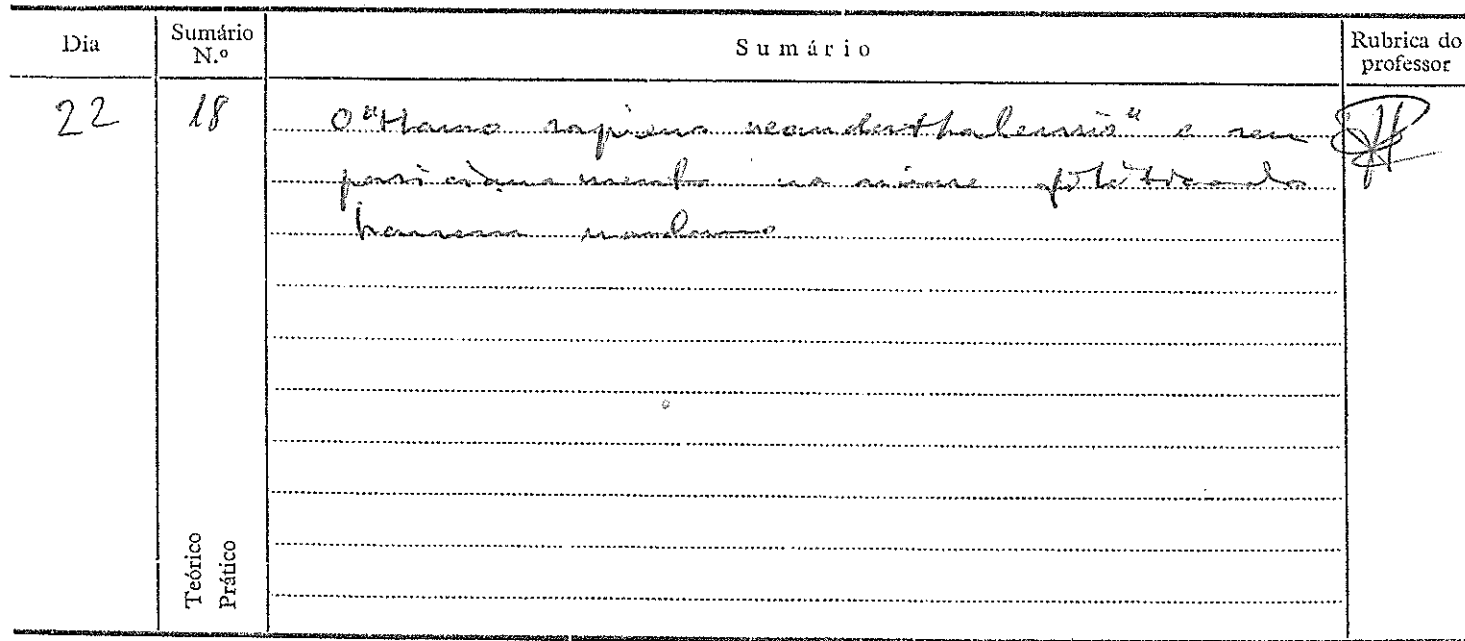 Dia Sumário N.º Sumário Rubrica do professor
22 18 O "Homo sapiens neanderthalensis" e seu
posicionamento na árvore filética do
homem moderno
Teórico
Prático